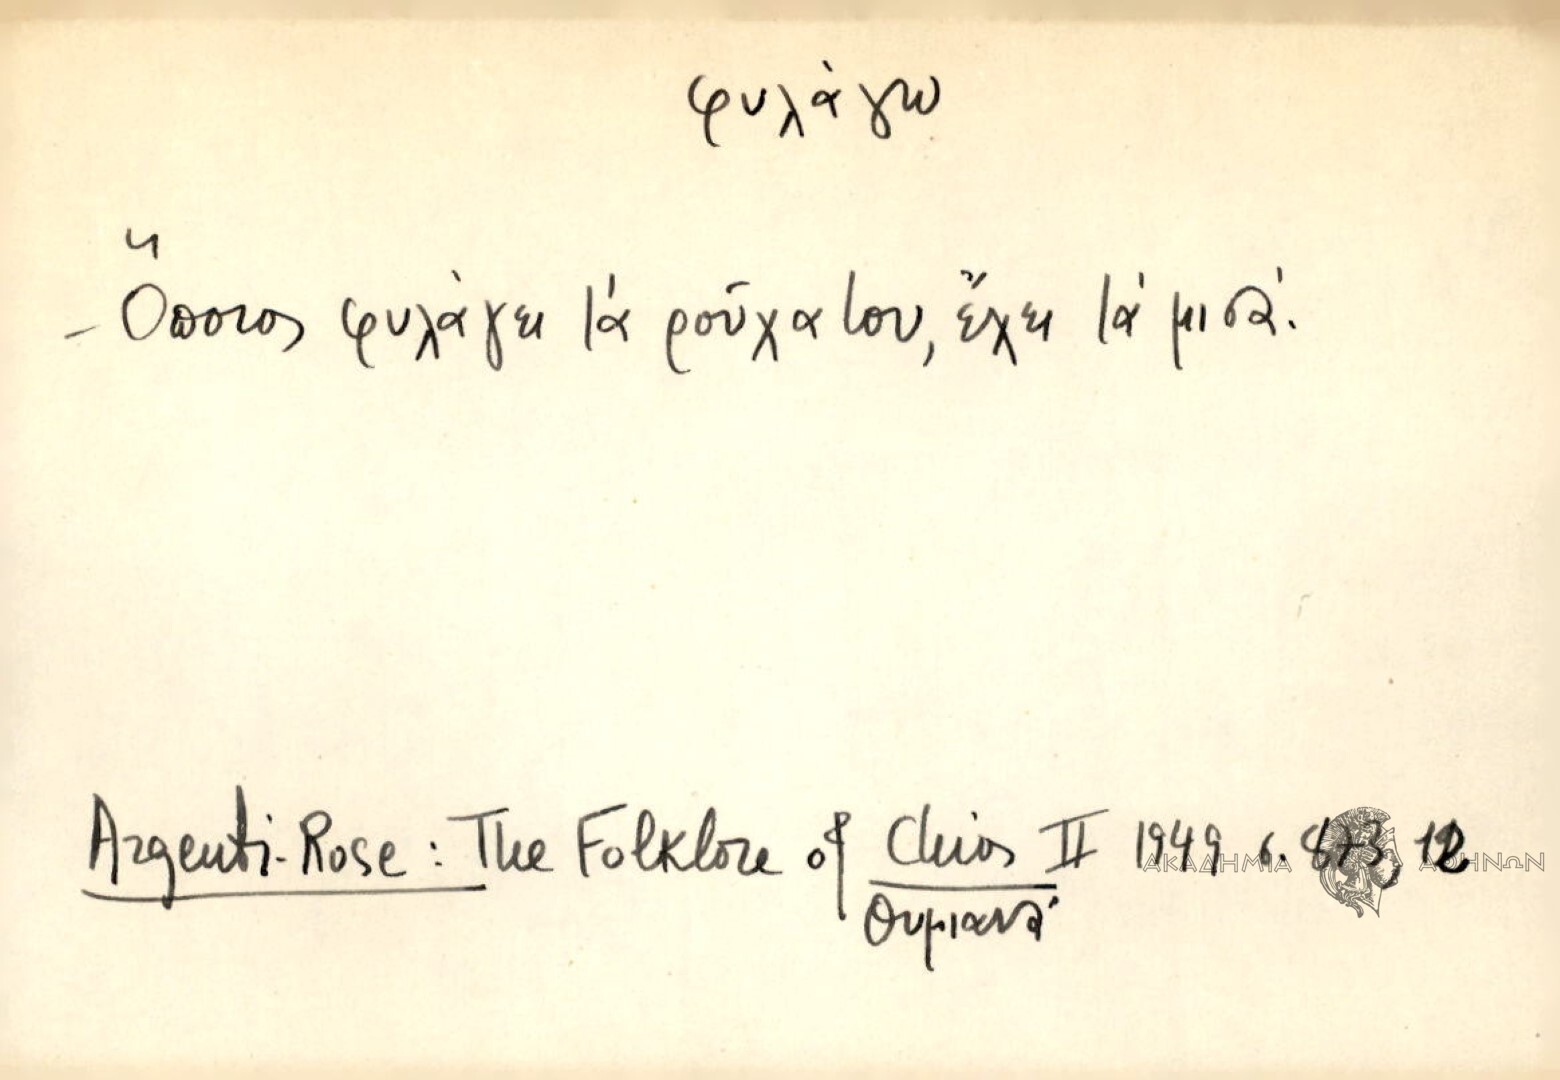 φυλάγω
- Ὅποιος φυλάγει τά ροῦχα του, ἔχει τά μισά.
Argenti-Rose: The Folklore of Chios II 1949 σ. 873 12
Θυμιανά
ΑΚΑΔΗΜΙΑ ΑΘΗΝΩΝ